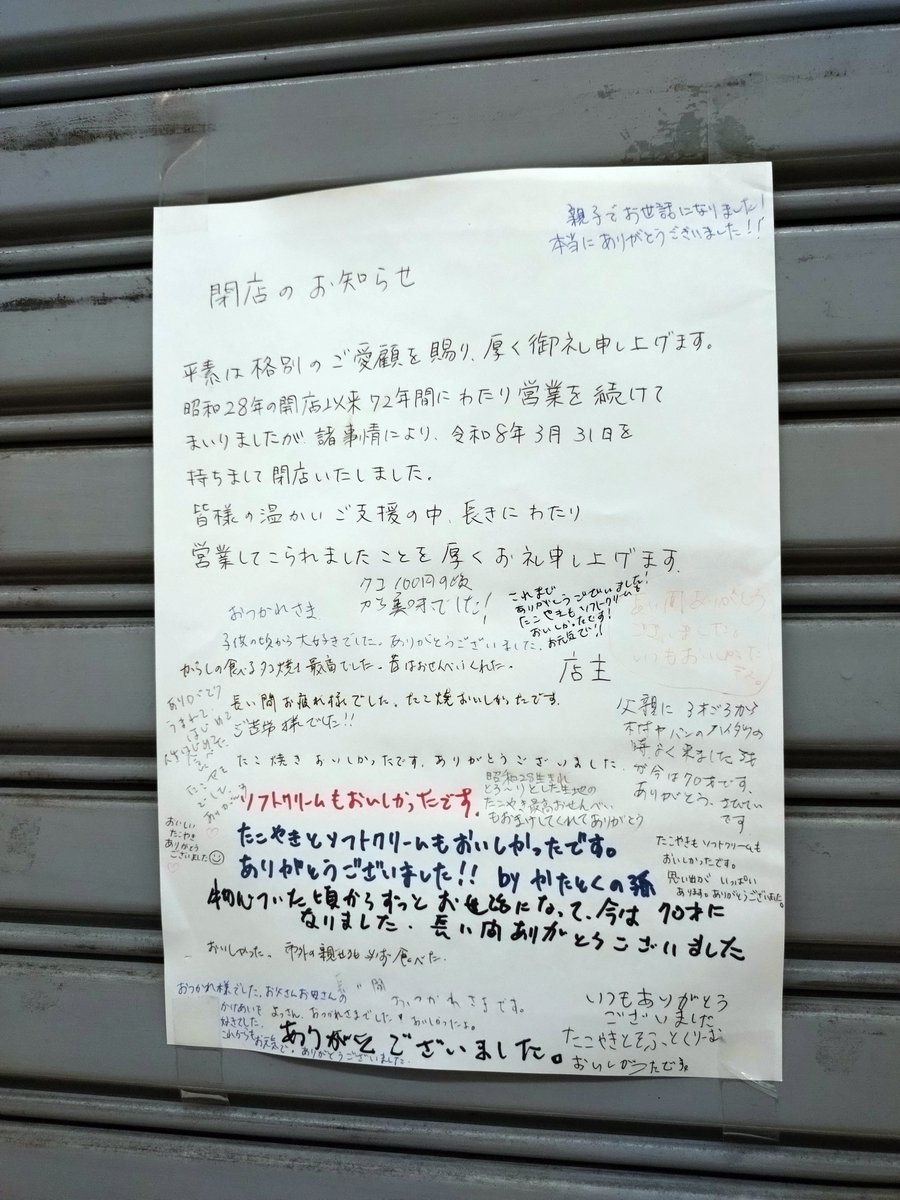 親子でお世話になりました!
本当にありがとうございました!!
閉店のお知らせ
平素は格別のご愛顧を賜り、厚く御礼申し上げます。
昭和28年の開店以来72年間にわたり営業を続けて
まいりましたが諸事情により、令和8年3月31日を
持ちまして閉店いたしました。
皆様の温かいご支援の中、長きにわたり
営業してこられましたことを厚くお礼申し上げます。
店主
クコ100円の頃
から美味でした!
これまで
ありがとうございました!
たこやきもソフトクリームも
おいしかったです!
お元気で!!
長い間ありがとう
ございました。
いつもおいしかった
デス。
おつかれさま
子供の頃から大好きでした。ありがとうございました。
からしの食べるタコ焼き最高でした。昔はおせんべいくれた。
長い間お疲れ様でした。たこ焼おいしかったです。
ご苦労様でした!!
たこ焼きおいしかったです。ありがとうございました。
父親に3才ごろから
の時よく来ました
が今は70才です。
ありがとう、さびしい
です
昭和28生まれ
とろ〜りとした生地の
たこやき最高おせんべい
もおまけしてくれてありがとう
ソフトクリームもおいしかったです。
おいしい
たこやき
ありがとう
ございました
たこやきとソフトクリームもおいしかったです。
ありがとうございました!! by かたとくの孫
たこやきもソフトクリームも
おいしかったです。
思い出がいっぱい
あります。ありがとうございました。
物心ついた頃からずっとお世話になって、今は70才に
なりました。長い間ありがとうございました
おいしかった。市外の親せきも必ず食べた。
長い間
おつかれさまです。
おつかれ様でした。お父さんお母さんの
かけあいも
好きでした。
これからもお元気で。ありがとうございました。
よっさん、おつかれさまでした おいしかったよ。
ありがとうございました。
いつもありがとう
ございました
たこやきとそふとくりーむ
おいしかったです